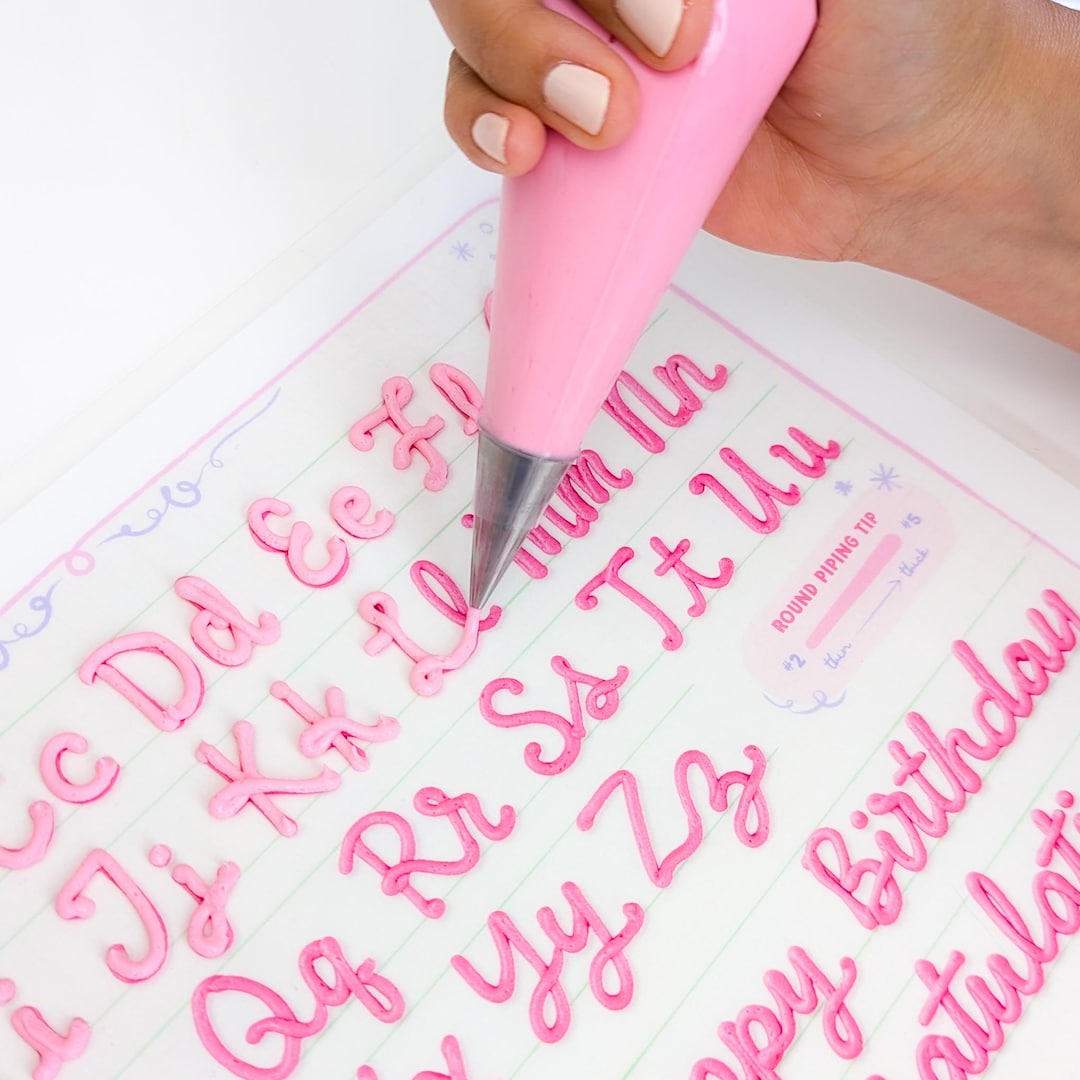 c Dd Ee F
Jj Kk Ll Mm Nn
Qq Rr Ss Tt Uu
Yy Zz
ROUND PIPING TIP
#2 thin → thick #5
ppy Birthday
atulat